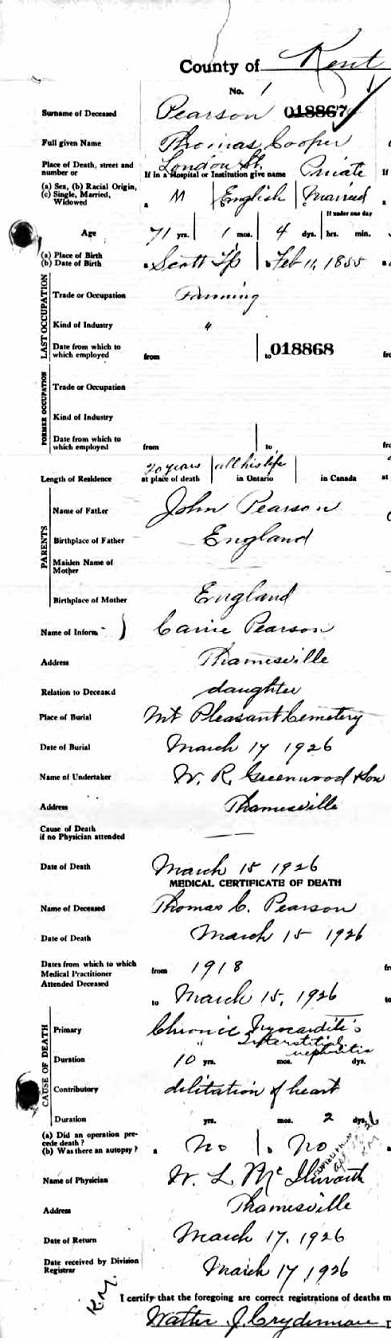 County of Kent
No. 1
Surname of Deceased Pearson 018867
Full given Name Thomas Cooper
Place of Death, street and number or London St. If in a Hospital or Institution give name Private
(a) Sex, (b) Racial Origin, (c) Single, Married, Widowed a M English Married
If under one day
Age 71 yrs. 1 mos. 4 dys. hrs. min.
(a) Place of Birth
(b) Date of Birth a Scott Tp b Feb 11, 1855
LAST OCCUPATION
Trade or Occupation Farming
Kind of Industry "
Date from which to which employed from to 018868
FORMER OCCUPATION
Trade or Occupation
Kind of Industry
Date from which to which employed from to
Length of Residence 20 years at place of death all his life in Ontario in Canada
PARENTS
Name of Father John Pearson
Birthplace of Father England
Maiden Name of Mother
Birthplace of Mother England
Name of Inform Carrie Pearson
Address Thamesville
Relation to Deceased daughter
Place of Burial Mt Pleasant Cemetery
Date of Burial March 17 1926
Name of Undertaker W. R. Greenwood & Son
Address Thamesville
Cause of Death if no Physician attended —
Date of Death March 15 1926
MEDICAL CERTIFICATE OF DEATH
Name of Deceased Thomas C. Pearson
Date of Death March 15 1926
Dates from which to which Medical Practitioner Attended Deceased from 1918
to March 15, 1926
CAUSE OF DEATH
Primary Chronic Myocarditis
" Interstitial nephritis
Duration 10 yrs. mos. dys.
Contributory dilitation of heart
Duration yrs. mos. 2 dys.
(a) Did an operation precede death?
(b) Was there an autopsy? a No b. No
Name of Physician W. L. McIlwraith
Address Thamesville
Date of Return March 17, 1926
Date received by Division Registrar March 17, 1926
K.M.
I certify that the foregoing are correct registrations of deaths m
Walter J. Cryderman